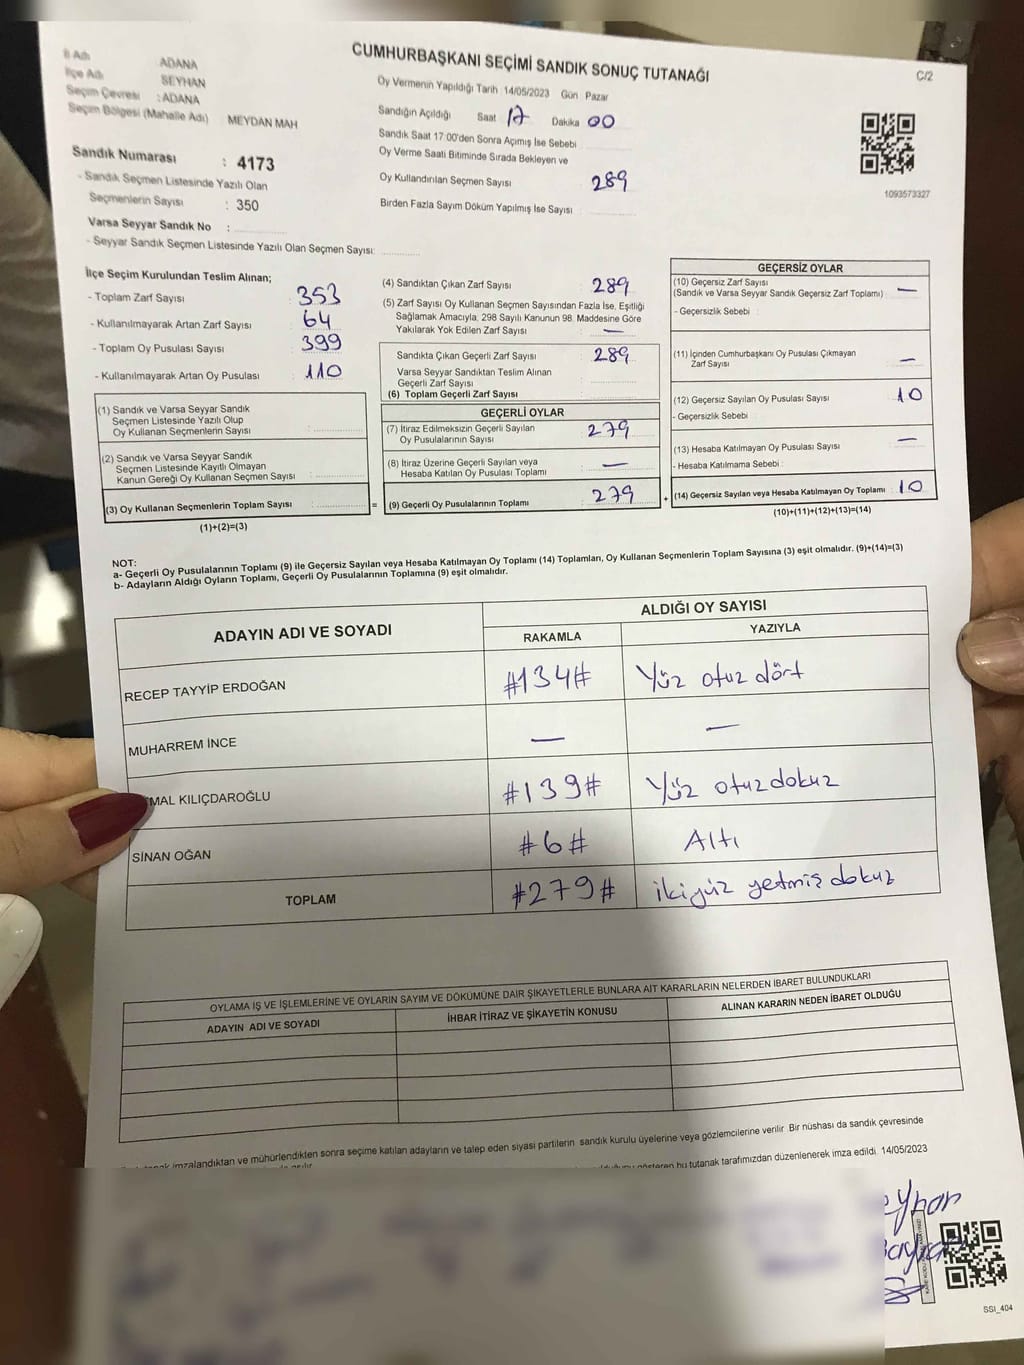 CUMHURBAŞKANI SEÇİMİ SANDIK SONUÇ TUTANAĞI
C/2
İl Adı ADANA
İlçe Adı SEYHAN
Seçim Çevresi : ADANA
Seçim Bölgesi (Mahalle Adı) MEYDAN MAH
Sandık Numarası : 4173
- Sandık Seçmen Listesinde Yazılı Olan
Seçmenlerin Sayısı : 350
Varsa Seyyar Sandık No :
- Seyyar Sandık Seçmen Listesinde Yazılı Olan Seçmen Sayısı:
Oy Vermenin Yapıldığı Tarih 14/05/2023 Gün Pazar
Sandığın Açıldığı Saat 17 Dakika 00
Sandık Saat 17:00'den Sonra Açımış İse Sebebi
Oy Verme Saati Bitiminde Sırada Bekleyen ve
Oy Kullandırılan Seçmen Sayısı 289
Birden Fazla Sayım Döküm Yapılmış İse Sayısı
1093573327
İlçe Seçim Kurulundan Teslim Alınan;
- Toplam Zarf Sayısı 353
- Kullanılmayarak Artan Zarf Sayısı 64
- Toplam Oy Pusulası Sayısı 399
- Kullanılmayarak Artan Oy Pusulası 110
(1) Sandık ve Varsa Seyyar Sandık
Seçmen Listesinde Yazılı Olup
Oy Kullanan Seçmenlerin Sayısı :
(2) Sandık ve Varsa Seyyar Sandık
Seçmen Listesinde Kayıtlı Olmayan
Kanun Gereği Oy Kullanan Seçmen Sayısı :
(3) Oy Kullanan Seçmenlerin Toplam Sayısı : =
(1)+(2)=(3)
(4) Sandıktan Çıkan Zarf Sayısı 289
(5) Zarf Sayısı Oy Kullanan Seçmen Sayısından Fazla İse, Eşitliği
Sağlamak Amacıyla, 298 Sayılı Kanunun 98. Maddesine Göre
Yakılarak Yok Edilen Zarf Sayısı —
Sandıkta Çıkan Geçerli Zarf Sayısı 289
Varsa Seyyar Sandıktan Teslim Alınan
Geçerli Zarf Sayısı
(6) Toplam Geçerli Zarf Sayısı
GEÇERLİ OYLAR
(7) İtiraz Edilmeksizin Geçerli Sayılan
Oy Pusulalarının Sayısı 279
(8) İtiraz Üzerine Geçerli Sayılan veya
Hesaba Katılan Oy Pusulası Toplamı —
(9) Geçerli Oy Pusulalarının Toplamı 279 +
GEÇERSİZ OYLAR
(10) Geçersiz Zarf Sayısı
(Sandık ve Varsa Seyyar Sandık Geçersiz Zarf Toplamı) —
- Geçersizlik Sebebi
(11) İçinden Cumhurbaşkanı Oy Pusulası Çıkmayan
Zarf Sayısı —
(12) Geçersiz Sayılan Oy Pusulası Sayısı 10
- Geçersizlik Sebebi
(13) Hesaba Katılmayan Oy Pusulası Sayısı —
- Hesaba Katılmama Sebebi :
(14) Geçersiz Sayılan veya Hesaba Katılmayan Oy Toplamı 10
(10)+(11)+(12)+(13)=(14)
NOT:
a- Geçerli Oy Pusulalarının Toplamı (9) ile Geçersiz Sayılan veya Hesaba Katılmayan Oy Toplamı (14) Toplamları, Oy Kullanan Seçmenlerin Toplam Sayısına (3) eşit olmalıdır. (9)+(14)=(3)
b- Adayların Aldığı Oyların Toplamı, Geçerli Oy Pusulalarının Toplamına (9) eşit olmalıdır.
ADAYIN ADI VE SOYADI
ALDIĞI OY SAYISI
RAKAMLA YAZIYLA
RECEP TAYYİP ERDOĞAN #134# Yüz otuz dört
MUHARREM İNCE — —
MAL KILIÇDAROĞLU #139# Yüz otuz dokuz
SİNAN OĞAN #6# Altı
TOPLAM #279# ikiyüz yetmiş dokuz
OYLAMA İŞ VE İŞLEMLERİNE VE OYLARIN SAYIM VE DÖKÜMÜNE DAİR ŞİKAYETLERLE BUNLARA AİT KARARLARIN NELERDEN İBARET BULUNDUKLARI
ADAYIN ADI VE SOYADI İHBAR İTİRAZ VE ŞİKAYETİN KONUSU ALINAN KARARIN NEDEN İBARET OLDUĞU
imzalandıktan ve mühürlendikten sonra seçime katılan adayların ve talep eden siyasi partilerin sandık kurulu üyelerine veya gözlemcilerine verilir. Bir nüshası da sandık çevresinde
gösteren bu tutanak tarafımızdan düzenlenerek imza edildi. 14/05/2023
SSI_404